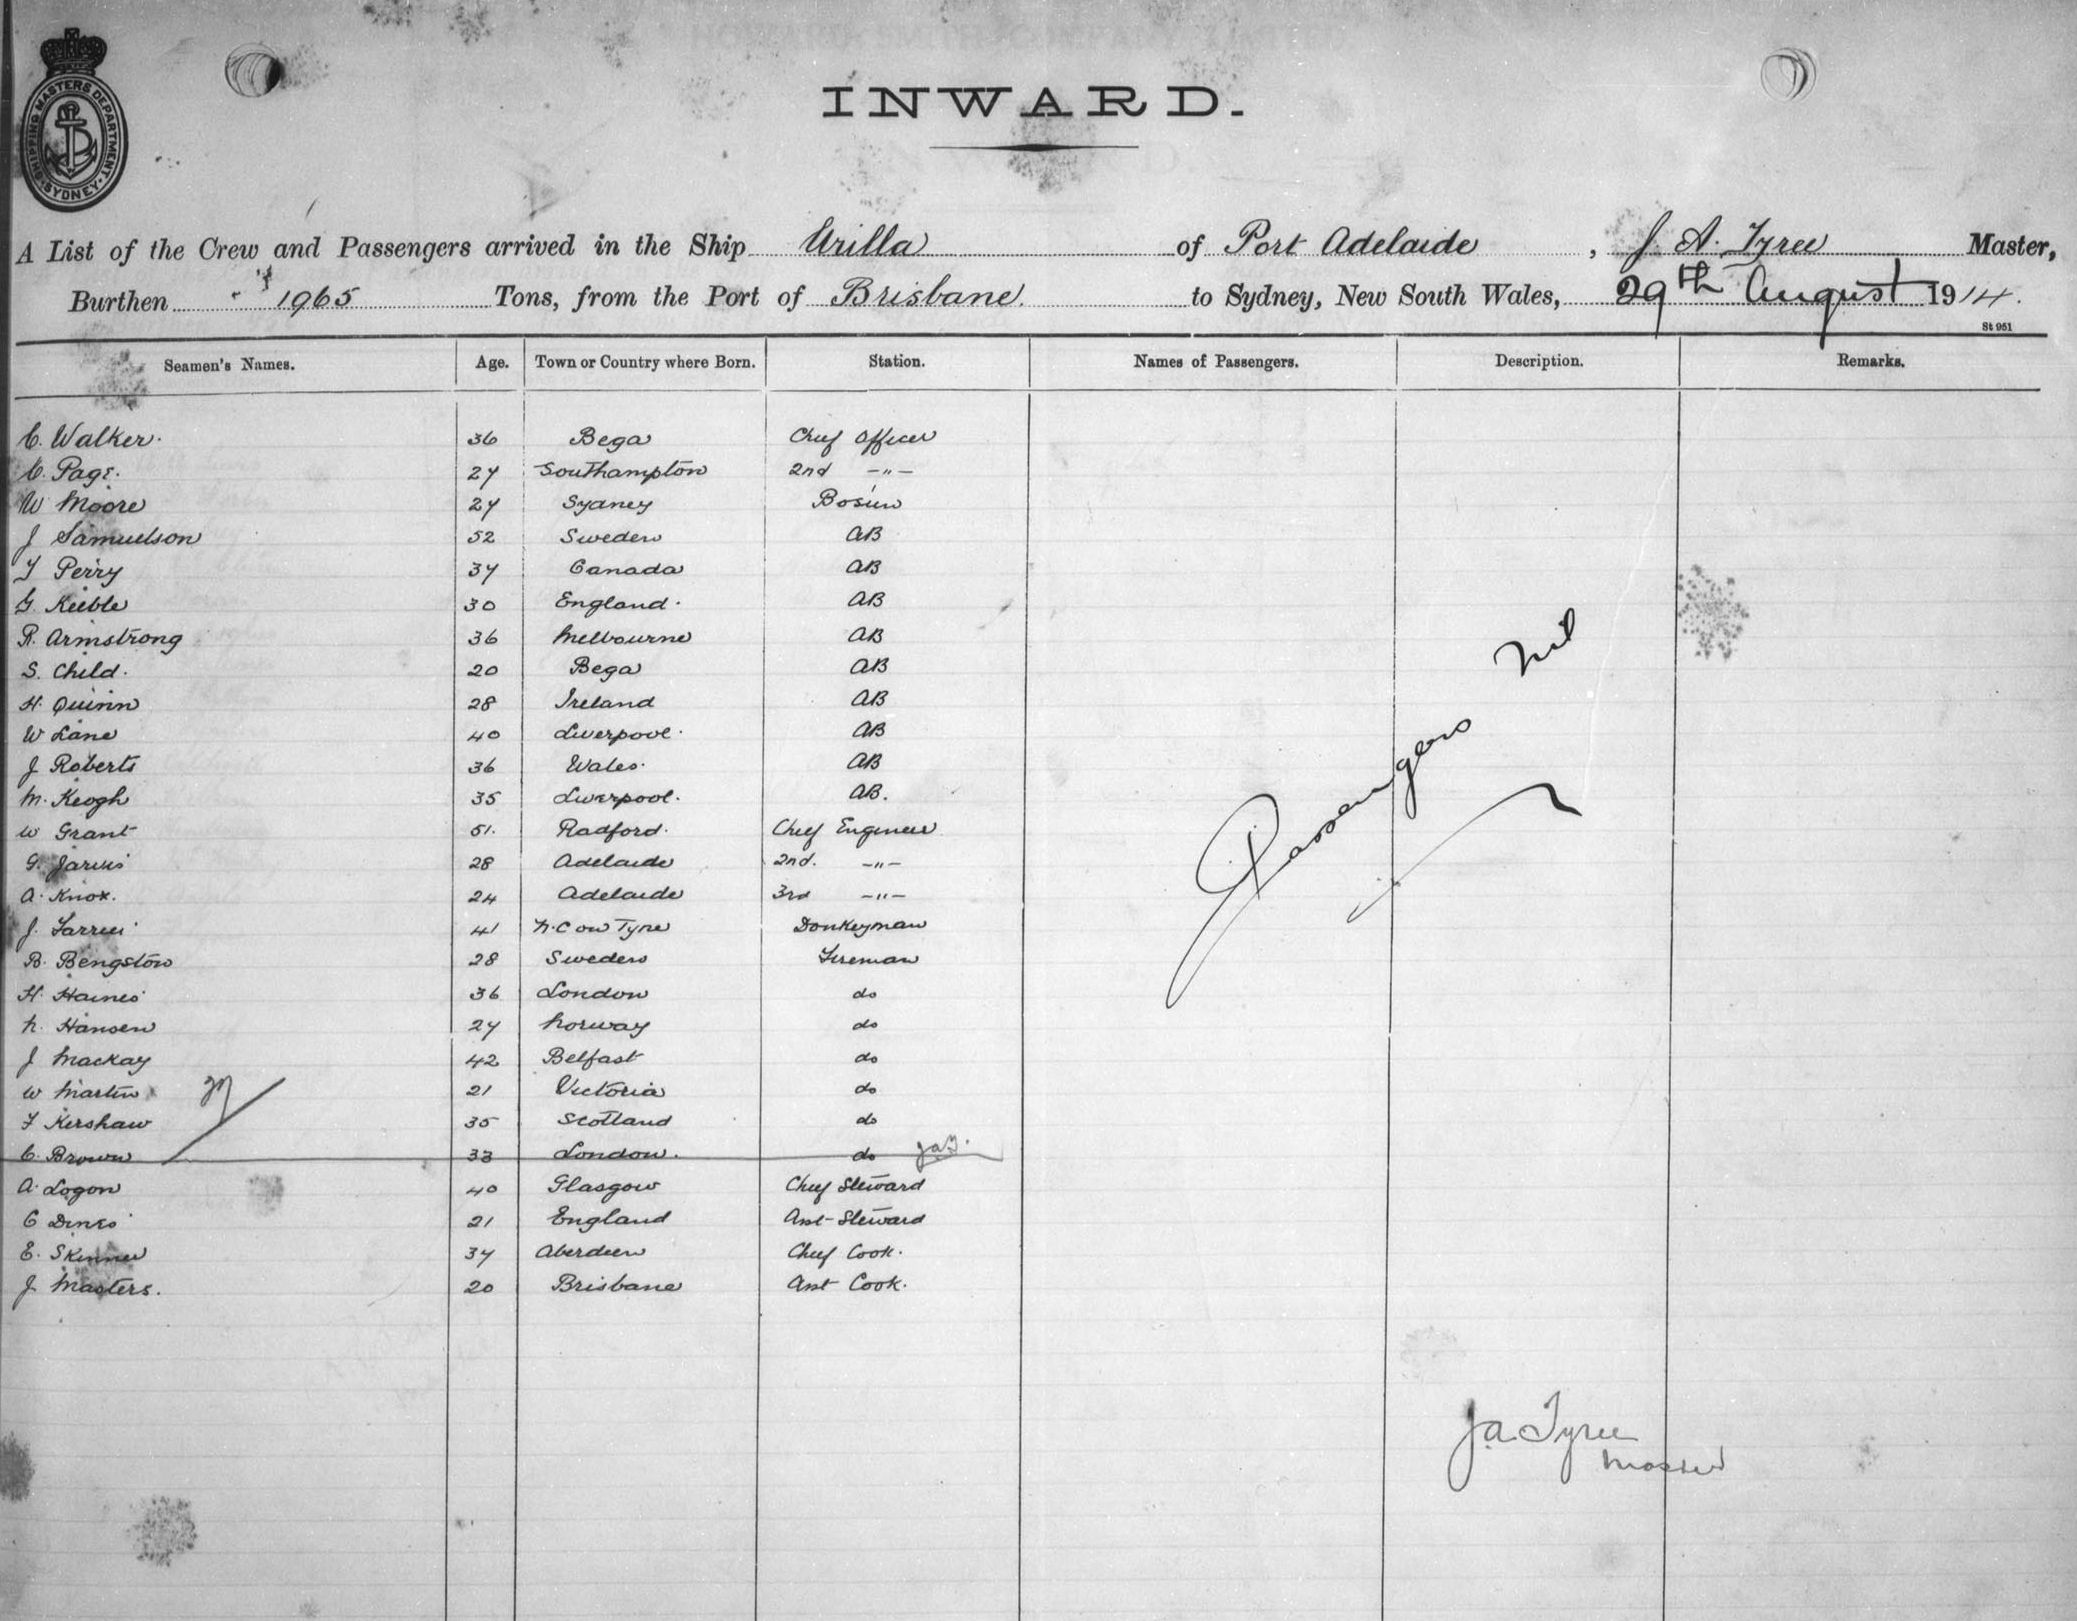 SHIPPING MASTERS DEPARTMENT SYDNEY
INWARD.
A List of the Crew and Passengers arrived in the Ship Urilla of Port Adelaide, J. A. Tyree Master,
Burthen 1965 Tons, from the Port of Brisbane to Sydney, New South Wales, 29th August 1914.
St 951
Seamen's Names. Age. Town or Country where Born. Station. Names of Passengers. Description. Remarks.
C. Walker. 36 Bega Chief Officer
C. Page. 27 Southampton 2nd -"-
W Moore 27 Sydney Bosun
J Samuelson 52 Sweden AB
T Perry 37 Canada AB
G. Keeble 30 England. AB
R. Armstrong 36 Melbourne AB
S. Child. 20 Bega AB
H. Quinn 28 Ireland AB
W Lane 40 Liverpool. AB
J Roberts 36 Wales. AB
M. Keogh 35 Liverpool. AB.
W Grant 51. Radford. Chief Engineer
G. Jarvis 28 Adelaide 2nd. -"-
A. Knox. 24 Adelaide 3rd -"-
J. 41 N.C on Tyne Donkeyman
B. Bengston 28 Sweden Fireman
H. Haines 36 London do
N. Hansen 27 Norway do
J Mackay 42 Belfast do
W Martin 21 Victoria do
F Kershaw 35 Scotland do
C. Brown 33 London. do JAT.
A. Logon 40 Glasgow Chief Steward
C Dines 21 England Asst Steward
E. Skinner 37 Aberdeen Chief Cook.
J Masters. 20 Brisbane Asst Cook.
Passengers Nil
J A Tyree
Master